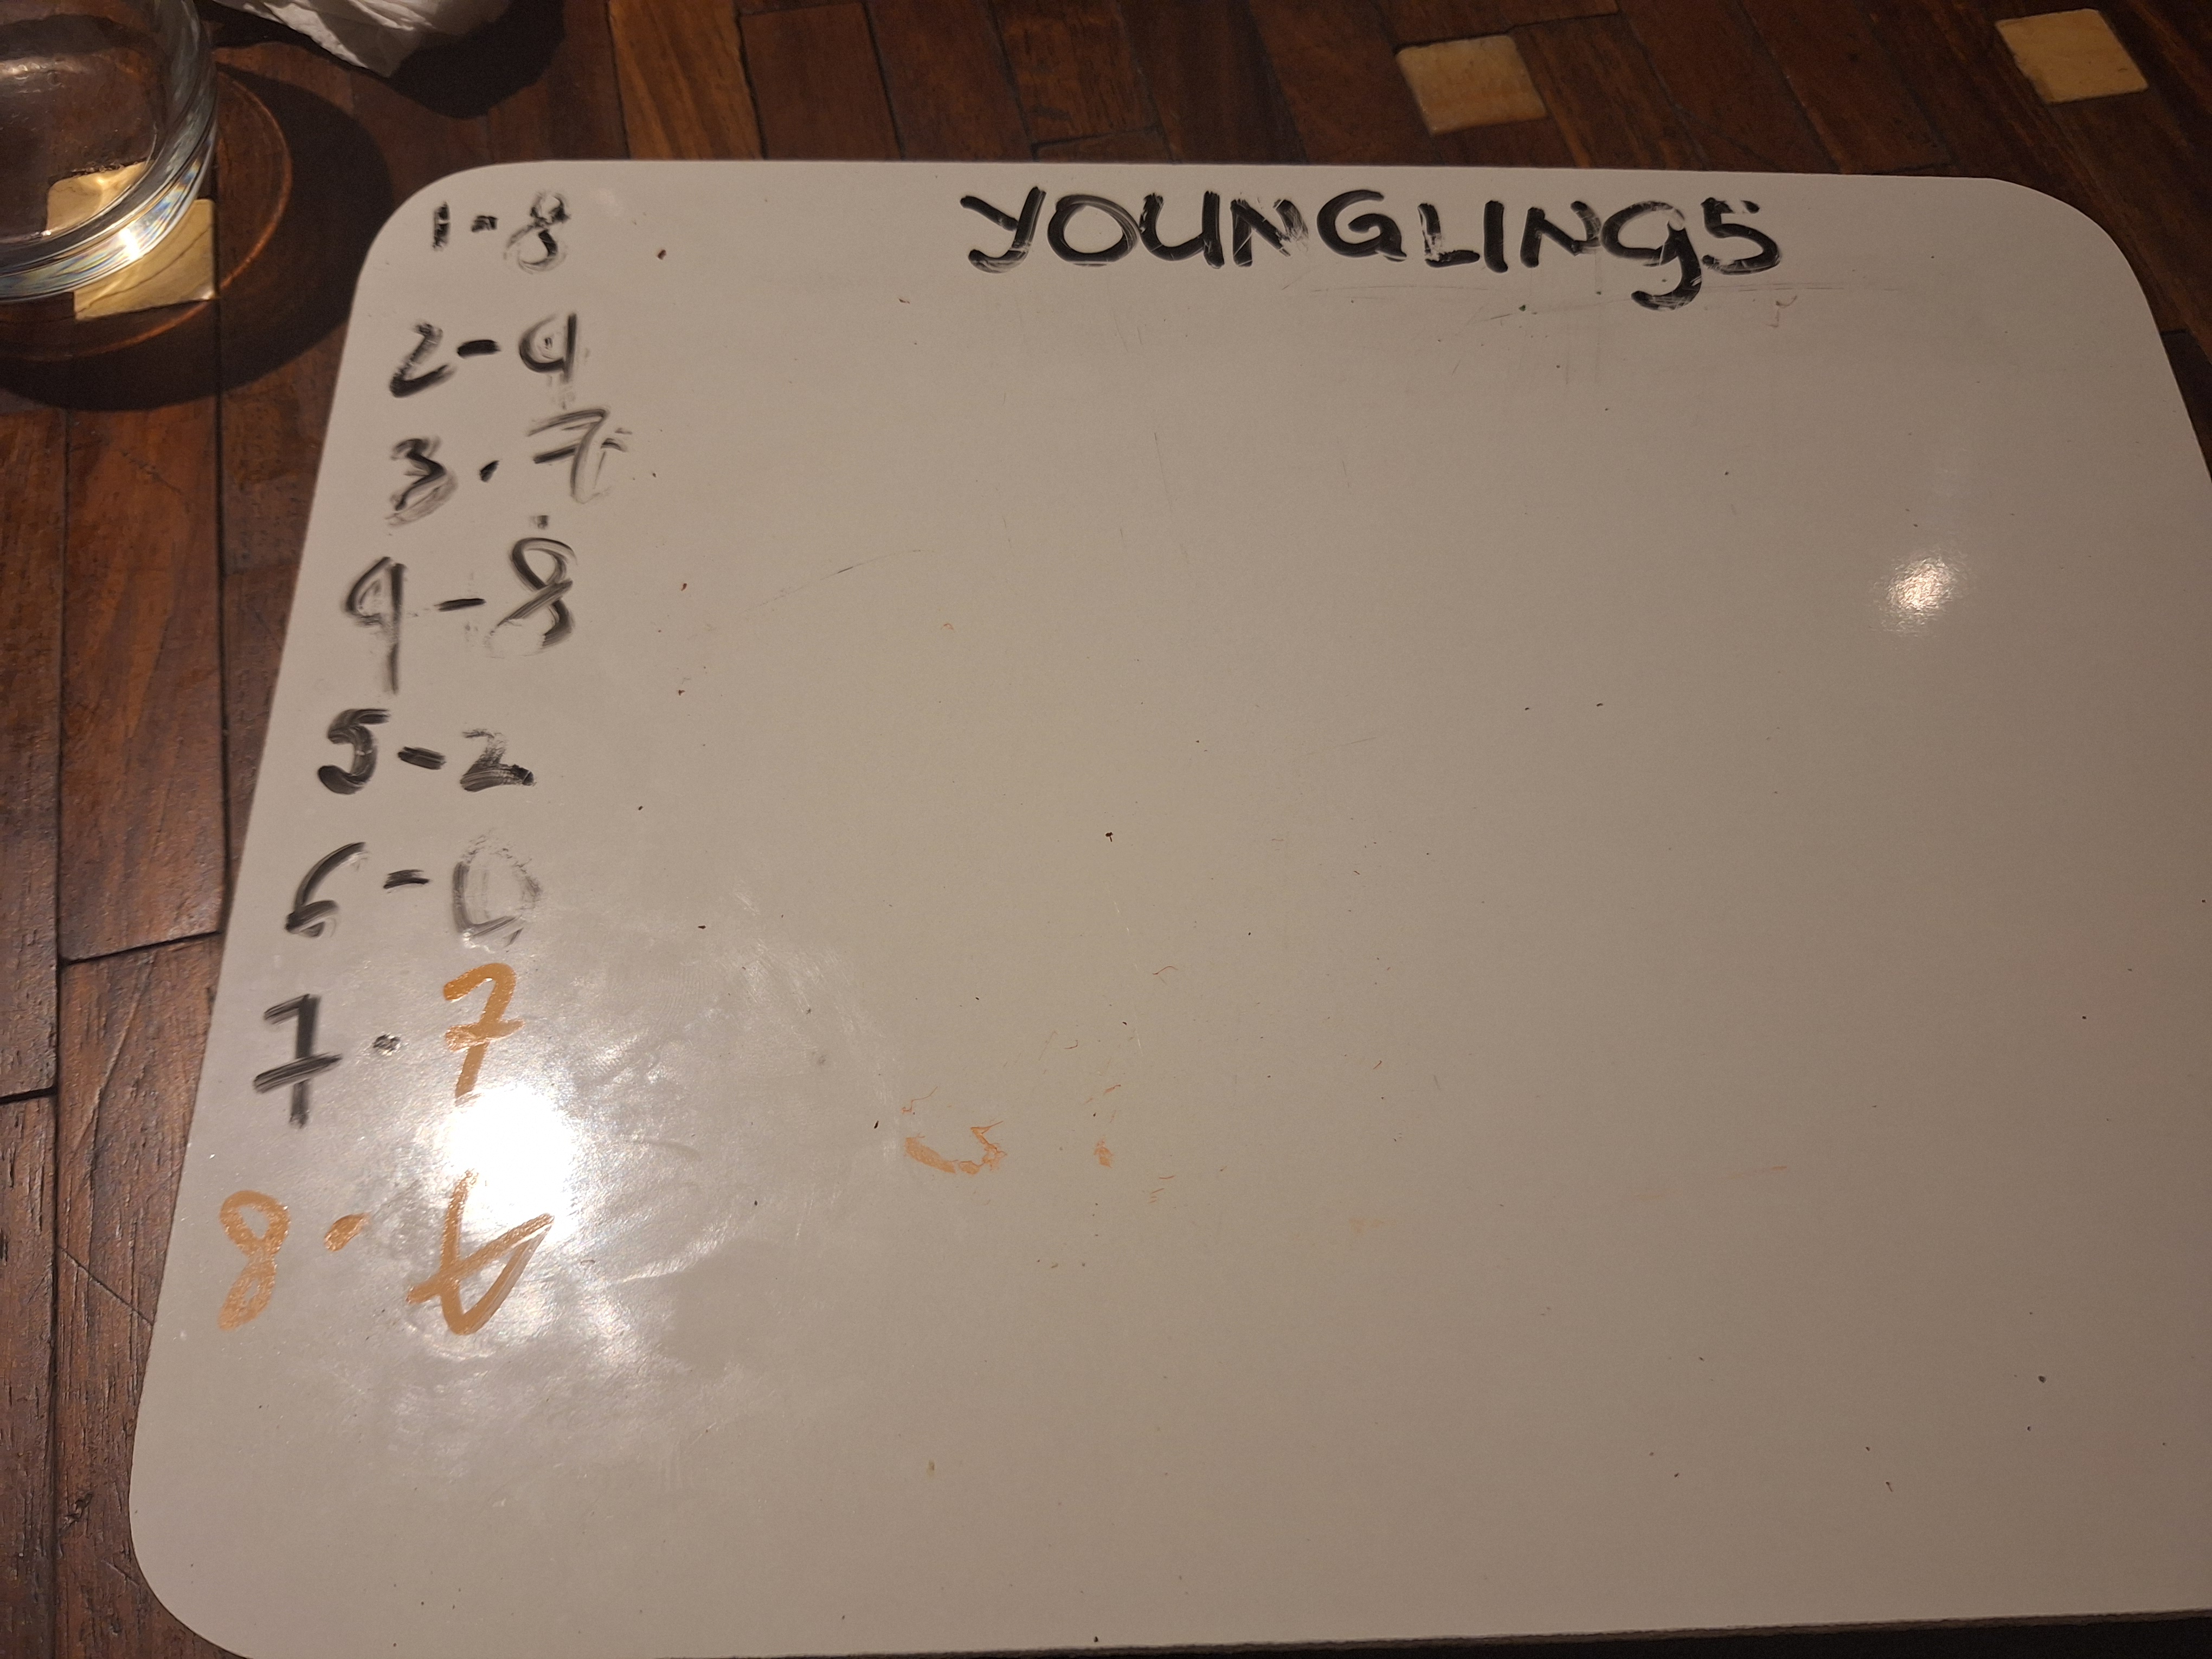 YOUNGLINGS
1-8
2-9
3.7
4-8
5-2
6-0
7.7
8.